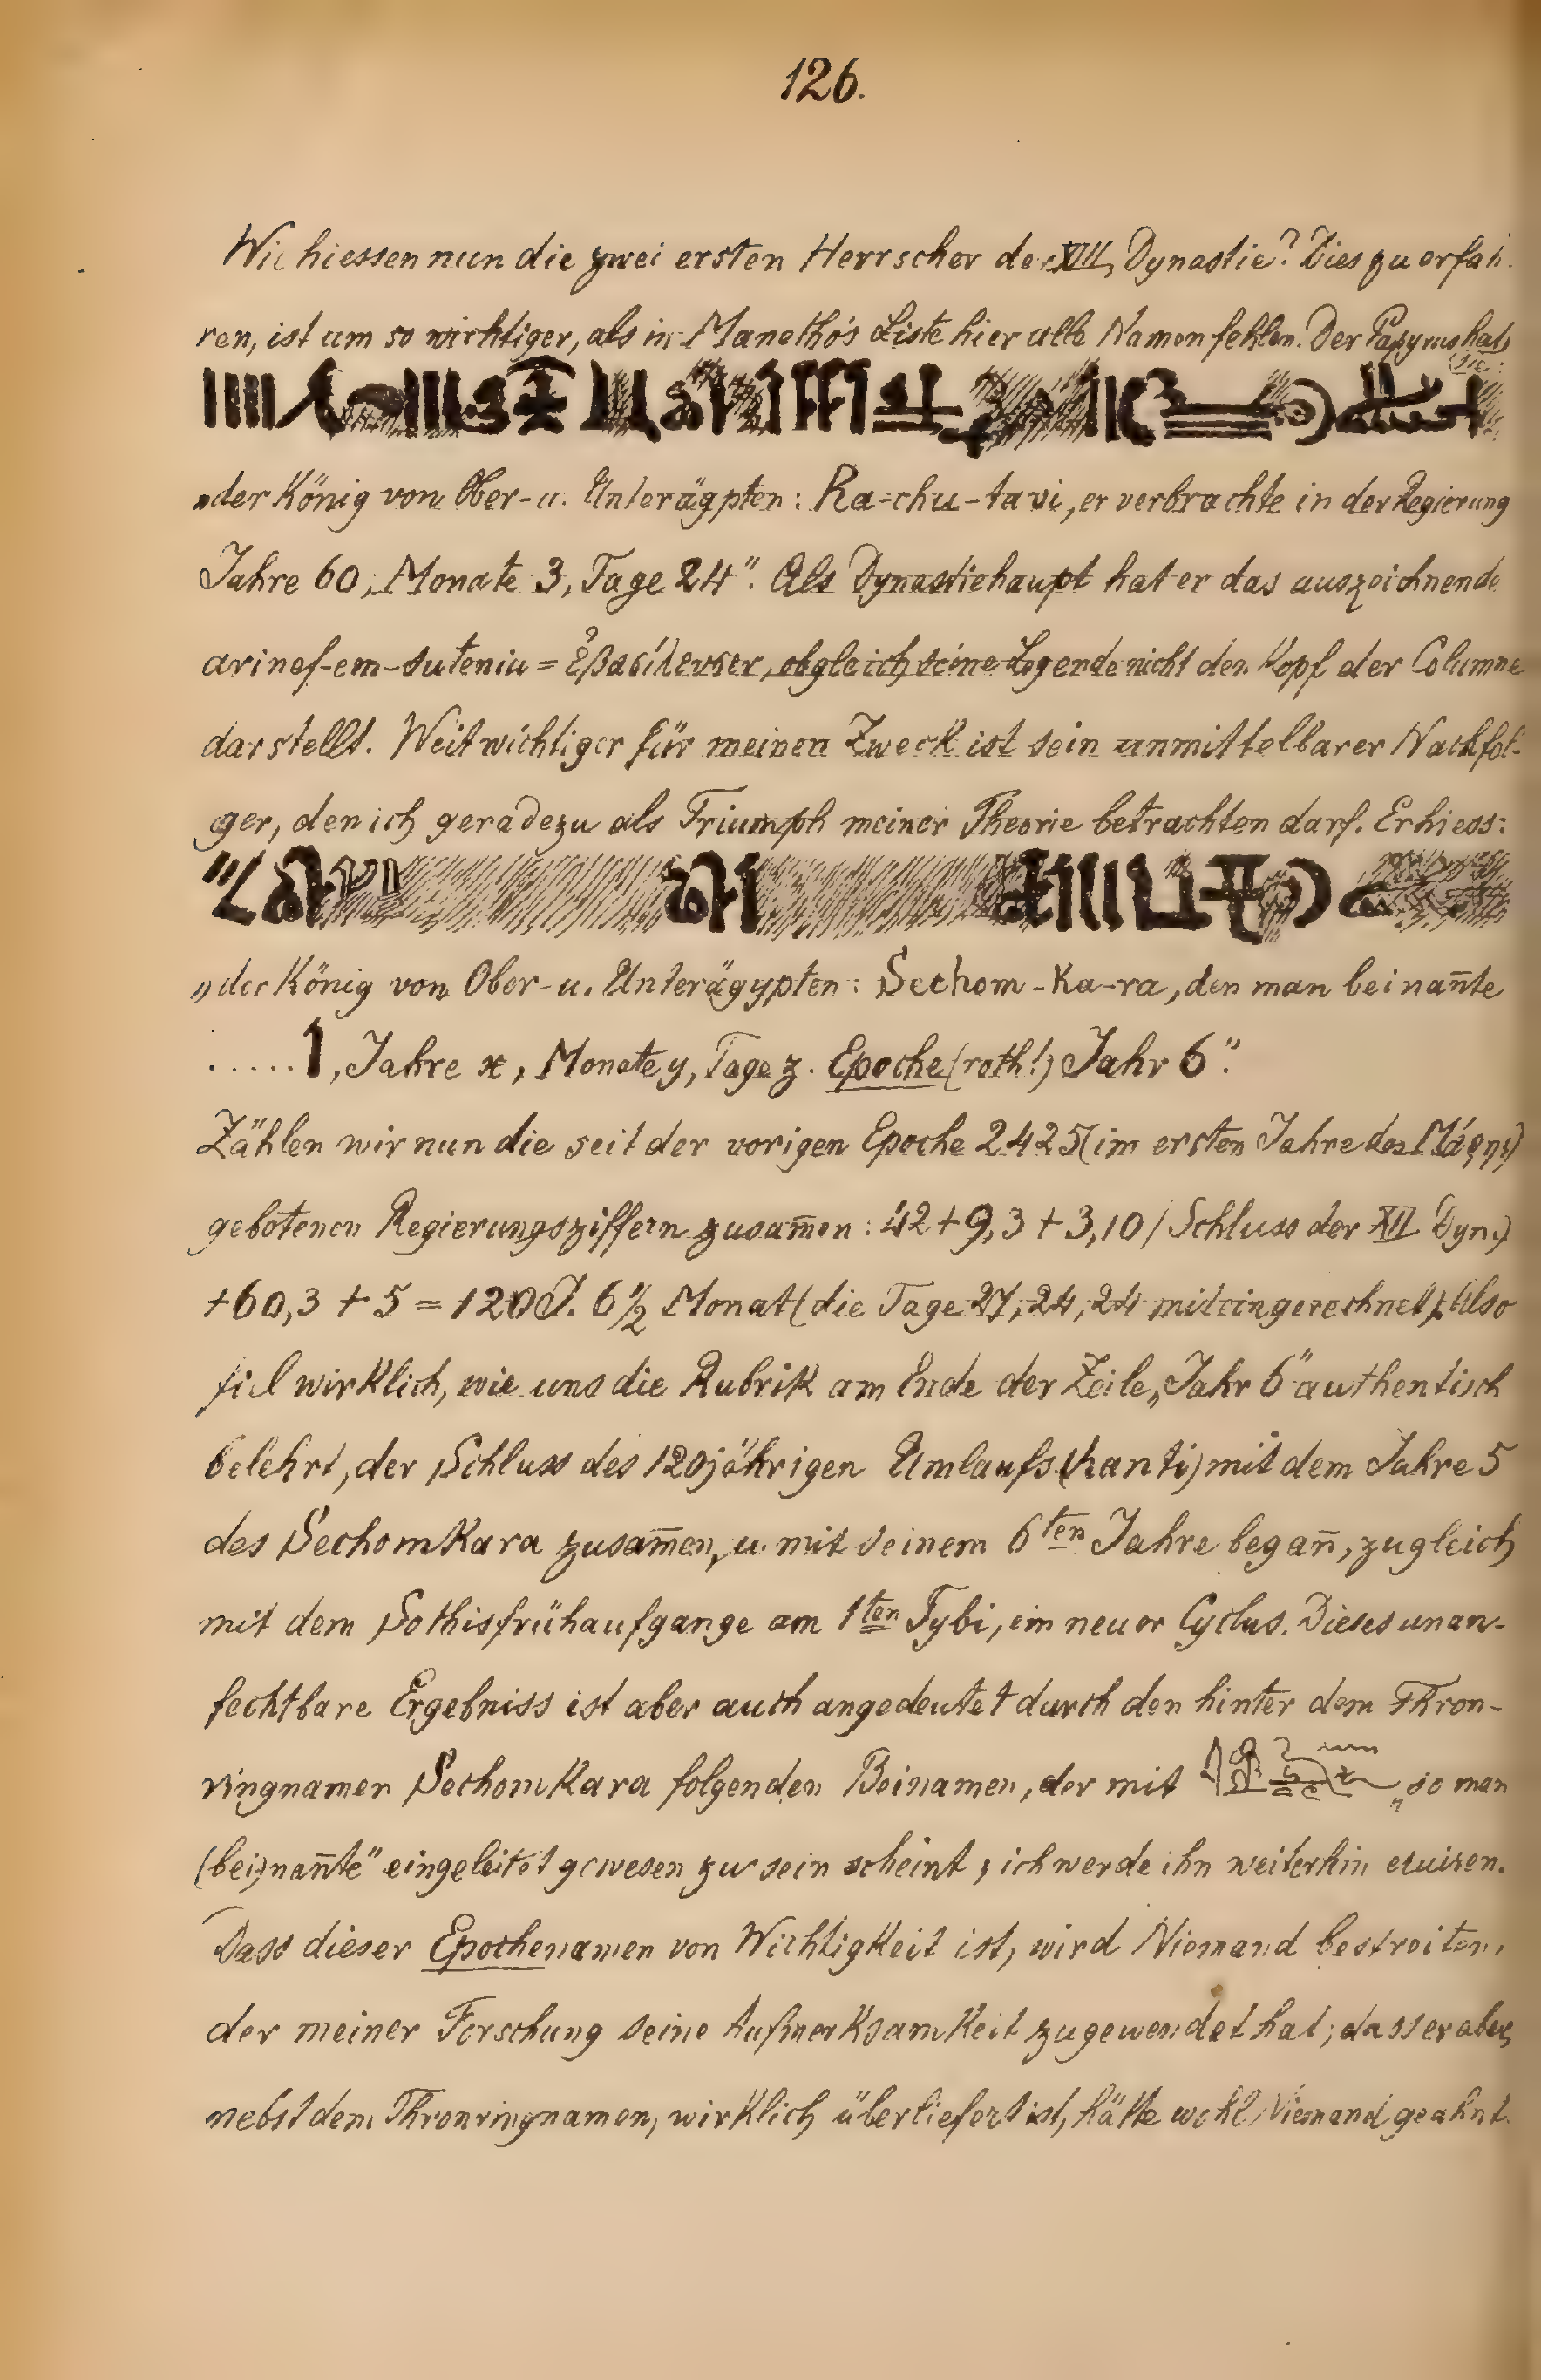 126.
Wie hiessen nun die zwei ersten Herrscher der XIII. Dynastie? Dies zu erfah-
ren, ist um so wichtiger, als in Manetho's Liste hier alle Namen fehlen. Der Papyrus hat
„der König von Ober- u. Unterägpten: Ra-chu-tavi, er verbrachte in der Regierung
Jahre 60, Monate 3, Tage 24“. Als Dynastiehaupt hat er das auszeichnende
arinef-em-suteniu = ἐβασίλευσεν, obgleich seine Legende nicht den Kopf der Columne
darstellt. Weit wichtiger für meinen Zweck ist sein unmittelbarer Nachfol-
ger, den ich geradezu als Triumph meiner Theorie betrachten darf. Er hiess:
„der König von Ober- u. Unterägypten: Sechem-Ka-ra, den man beinan̄te
....., Jahre x, Monate y, Tage z. Epoche (roth!) Jahr 6“.
Zählen wir nun die seit der vorigen Epoche 2425 (im ersten Jahre des Μάρης)
gebotenen Regierungsziffern zusam̄en: 42 + 9,3 + 3,10 (Schluss der XII Dyn.)
+ 60,3 + 5 = 120 J. 6 1/2 Monat (die Tage 27, 24, 24 miteingerechnet). Also
fiel wirklich, wie uns die Rubrik am Ende der Zeile „Jahr 6“ authentisch
belehrt, der Schluss des 120jährigen Umlaufs (hanti) mit dem Jahre 5
des SechemKara zusam̄en, u. mit seinem 6ten Jahre began̄, zugleich
mit dem Sothisfrühaufgange am 1ten Tybi, ein neuer Cyclus. Dieses unan-
fechtbare Ergebniss ist aber auch angedeutet durch den hinter dem Thron-
ringnamen SechemKara folgenden Beinamen, der mit „so man
(bei)nan̄te“ eingeleitet gewesen zu sein scheint; ich werde ihn weiterhin eruiren.
Dass dieser Epochenamen von Wichtigkeit ist, wird Niemand bestreiten,
der meiner Forschung seine Aufmerksamkeit zugewendet hat; dass er aber,
nebst dem Thronringnamen, wirklich überliefert ist, hätte wohl Niemand geahnt.